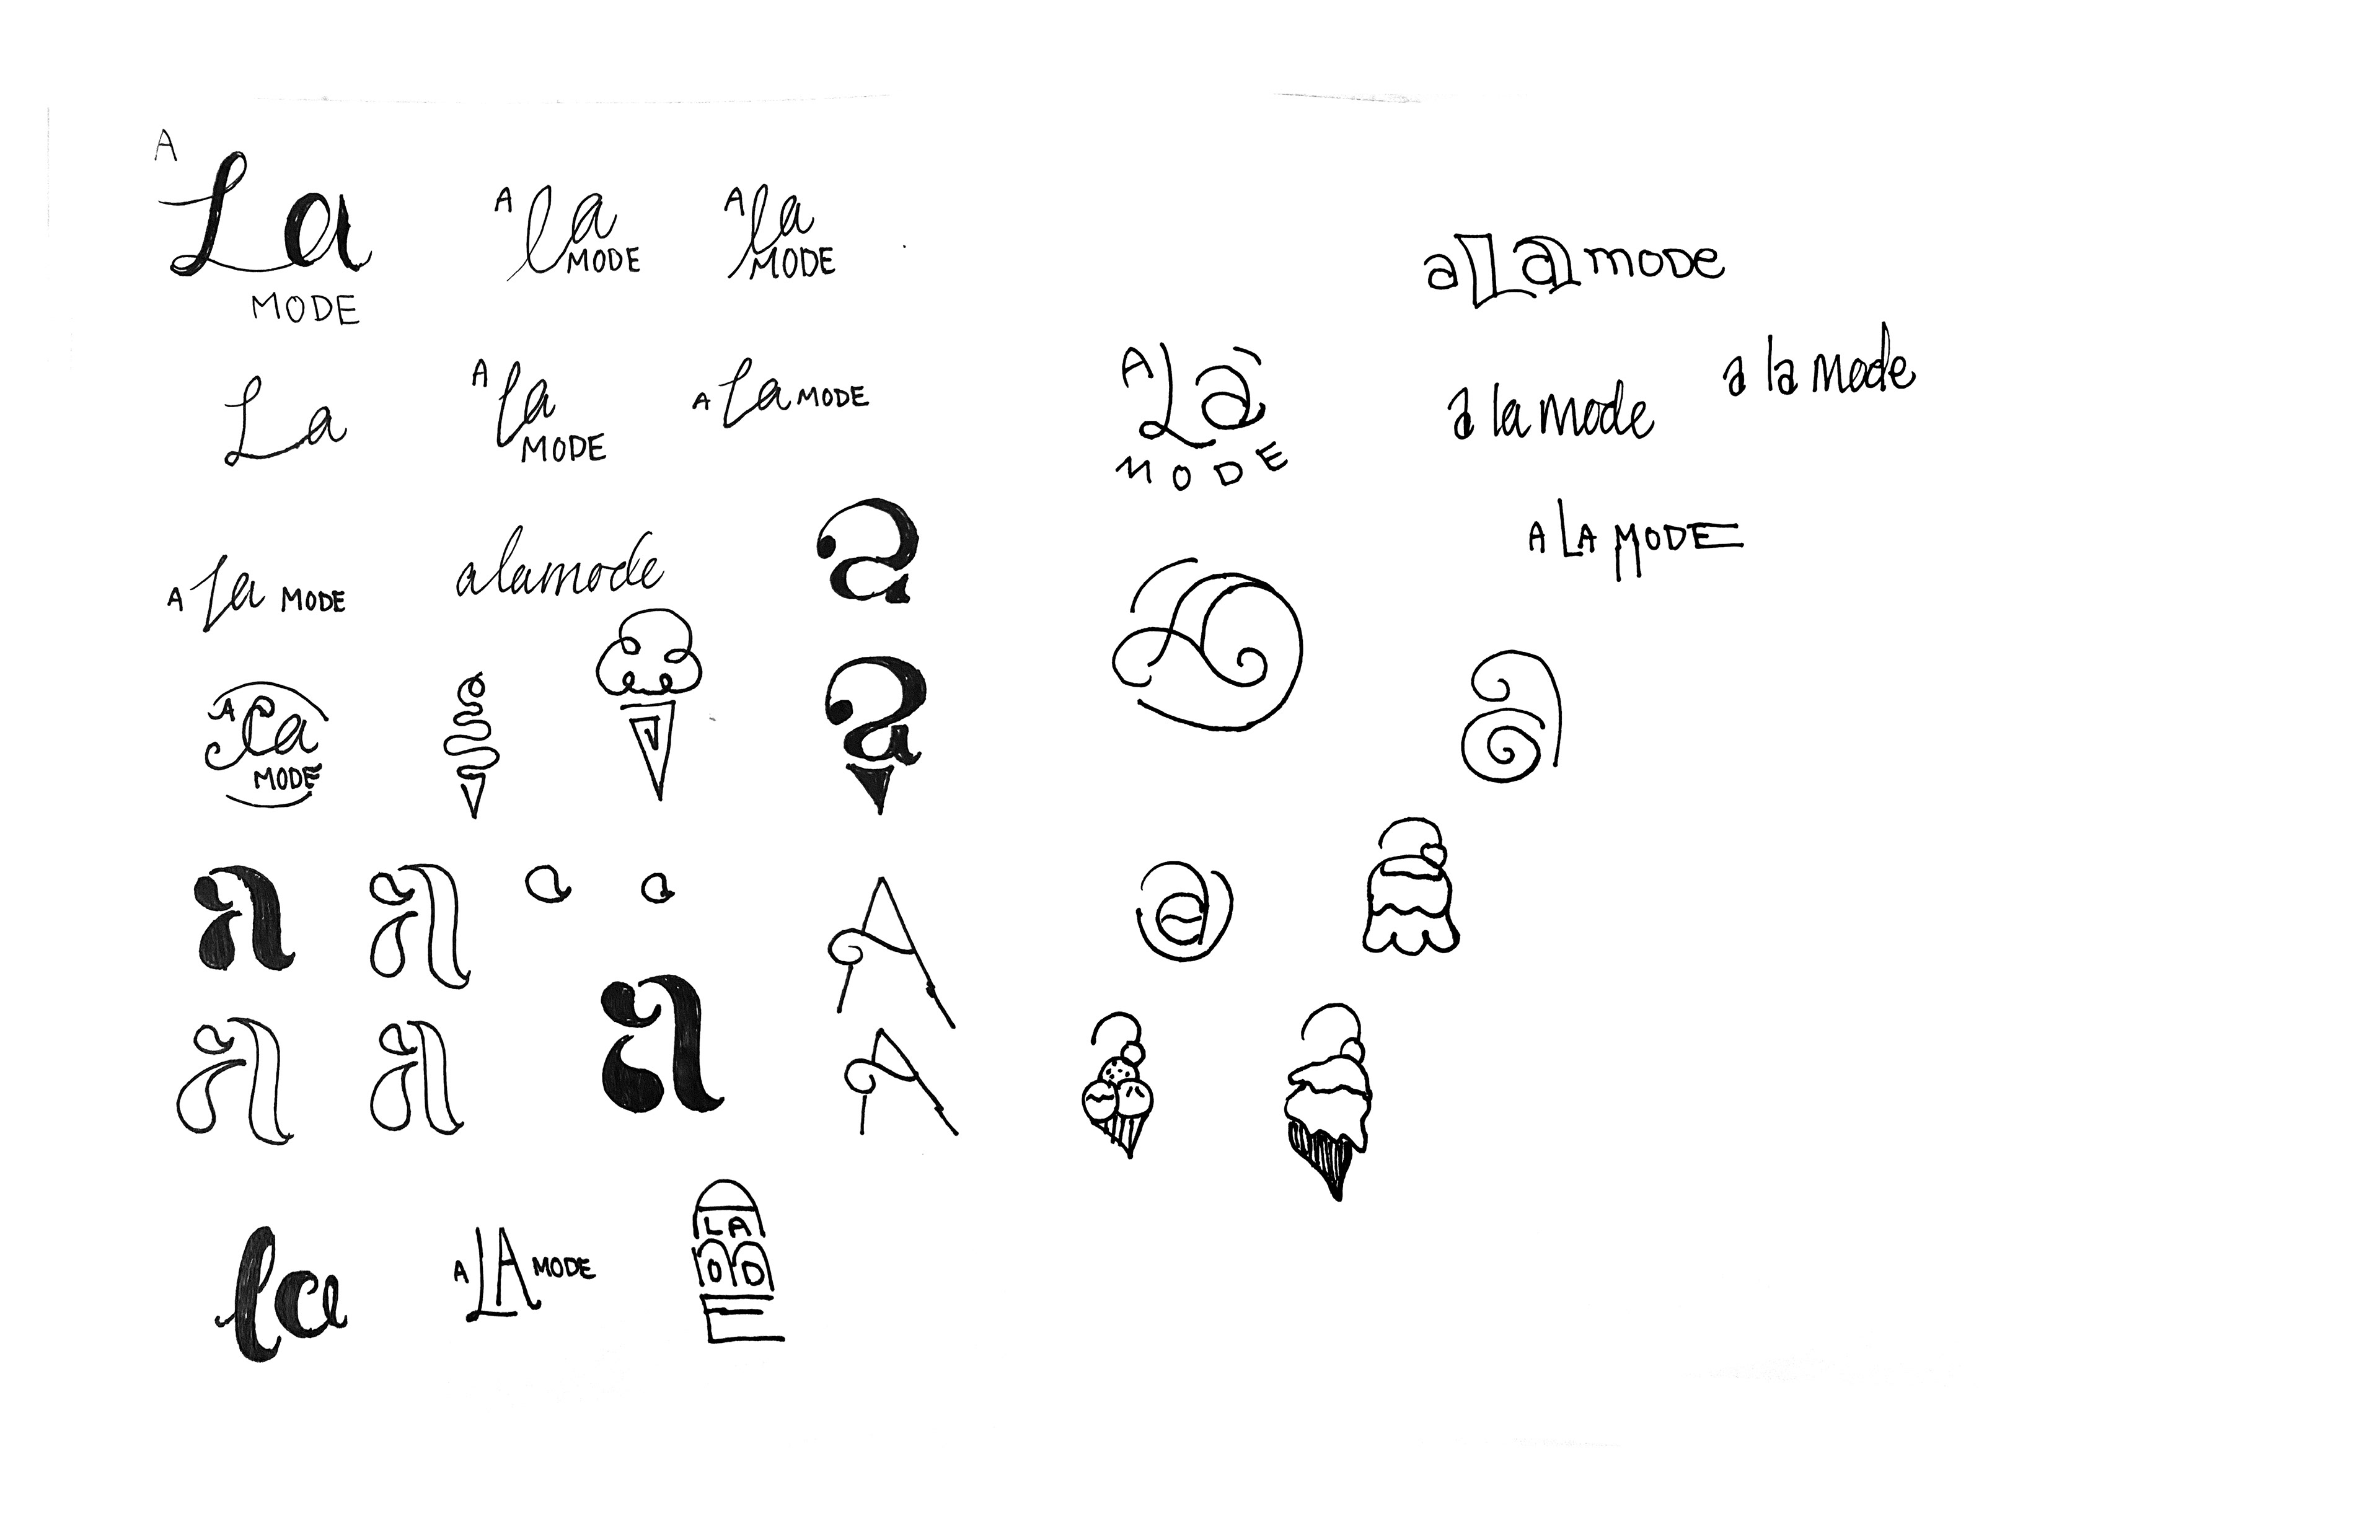 A
La
MODE
A la
MODE
A la
MODE
a La mode
La
A La
MODE
A La MODE
A La
MODE
a la mode
a la mode
A La MODE
alamode
a
A LA MODE
A La
MODE
a
a
a
a
a
a
A
a
a
a
a
A
la
A LA MODE
LA
OD
E